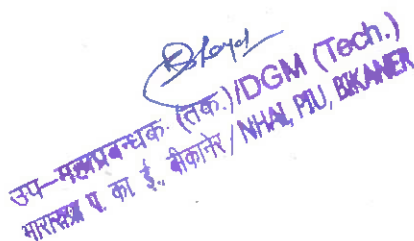 उप-महाप्रबन्धक (तक.)/DGM (Tech.)
भारारा. प. का ई., बीकानेर / NHAI, PIU, BIKANER